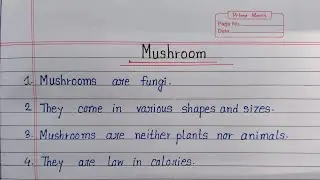 Prime Moments
Page No.
Date
Mushroom
1. Mushrooms are fungi.
2. They come in various shapes and sizes.
3. Mushrooms are neither plants nor animals.
4. They are low in calories.